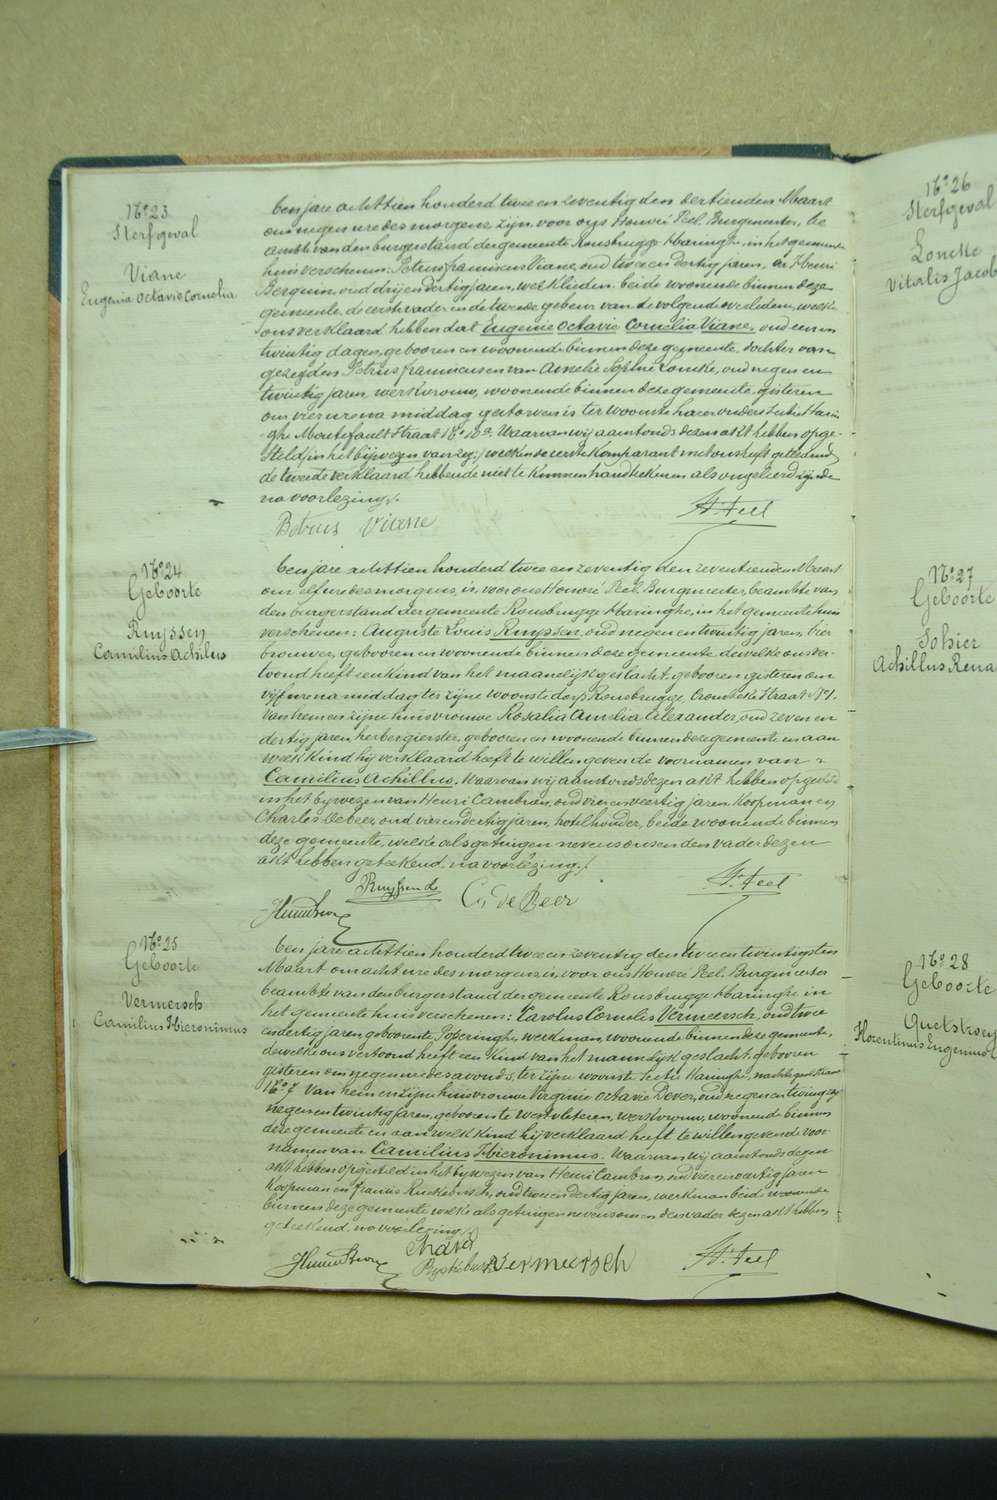 N.º 23
Sterfgeval
Viane
Eugenia Octavie Cornelia
Een jare achttien honderd twee en zeventig den dertienden Maart
om negen ure des morgens zijn voor ons Honoré Peel, Burgmeester, be
ambte van den burgerstand der gemeente Rousbrugge Haringhe, in het gemeente
huis verschenen: Petrus franciscus Viane, oud twee en dertig jaren, en Henri
Berquin, oud drij en dertig jaren, werklieden, beide woonende binnen deze
gemeente, de eerste vader en de tweede gebuur van de volgende overledene, welke
ons verklaard hebben dat Eugenie Octavie Cornelia Viane, oud een en
twintig dagen, gebooren en woonende binnen deze gemeente, dochter van
gezegden Petrus franciscus en van Amelie Sophie Loncke, oud negen en
twintig jaren, werkvrouw, woonende binnen deze gemeente, gisteren
om vier ure na middag gestorven is ter woonste haer ouders Sectie Harin
ghe Moutefault Straat N.º Waarvan wij aanstonds dezen akt hebben opge-
steld in het bijwezen van de eerste komparant met ons heeft geteekend,
de tweede verklaard hebbende niet te kunnen handtekenen als ongeleerd zijnde
na voorlezing./.
Petrus Viane
H. Peel
N.º 24
Geboorte
Ruyssen
Camilius Achilus
Een jare achttien honderd twee en zeventig den zeventienden Maart
om elf ure des morgens, is voor ons Honoré Peel, Burgmeester, beambte van
den burgerstand der gemeente Rousbrugge Haringhe, in het gemeente huis
verschenen: Auguste Louis Ruyssen, oud negen en twintig jaren, bier
brouwer, gebooren en woonende binnen deze gemeente dewelke ons ver-
toond heeft een kind van het mannelijk geslacht, gebooren gisteren om
vijf ure na middag ter zijne woonste dorp Rousbrugge, Crombeke Straat N.º 1.
van hem en zijne huisvrouwe Rosalia Amelia Alexander, oud zeven en
dertig jaren, herbergierster, gebooren en woonende binnen deze gemeente en aan
welk kind hij verklaard heeft te willen geven de voornamen van
Camilius Achillus. Waarvan wij aanstonds dezen akt hebben opgesteld
in het bijwezen van Henri Cambron, oud vier en veertig jaren, Koopman en
Charles Debeer, oud vier en dertig jaren, hotelhouder, beide woonende binnen
deze gemeente, welke als getuigen nevens ons en den vader dezen
akt hebben geteekend, na voorlezing./.
Ruyssen
Ch. de Beer
H. Peel
N.º 25
Geboorte
Vermersch
Camilius Hieronimus
Een jare achttien honderd twee en zeventig den twee en twintigsten
Maart om acht ure des morgens, is voor ons Honoré Peel, Burgmeester
beambte van den burgerstand der gemeente Rousbrugge Haringhe in
het gemeente huis verschenen: Carolus Cornelis Vermeersch, oud twee
en dertig jaren, geboren te Poperinghe, werkman, woonende binnen deze gemeente,
dewelke ons vertoond heeft een kind van het mannelijk geslacht, gebooren
gisteren om negen ure des avonds, ter zijne woonste Sectie Haringhe,
N.º 7 van hem en zijne huisvrouwe Virginie Octavie Dever, oud
negen en twintig jaren, geboren te Westvleteren, werkvrouw, woonende binnen
deze gemeente en aan welk kind hij verklaard heeft te willen geven de voor
namen van Camilius Hieronimus. Waarvan wij aanstonds dezen
akt hebben opgesteld in het bijwezen van Henri Cambron, oud vier en veertig jaren
Koopman en francis oud twee en dertig jaren, werkman beide woonende
binnen deze gemeente welke als getuigen nevens ons en den vader dezen akt hebben
geteekend na voorlezing./.
Vermeersch
H. Peel
N.º 26
Sterfgeval
Loncke
Vitalis Jacob
N.º 27
Geboorte
Sohier
Achillus Rena
N.º 28
Geboorte
Quetstroey
Florentinus Eugenius